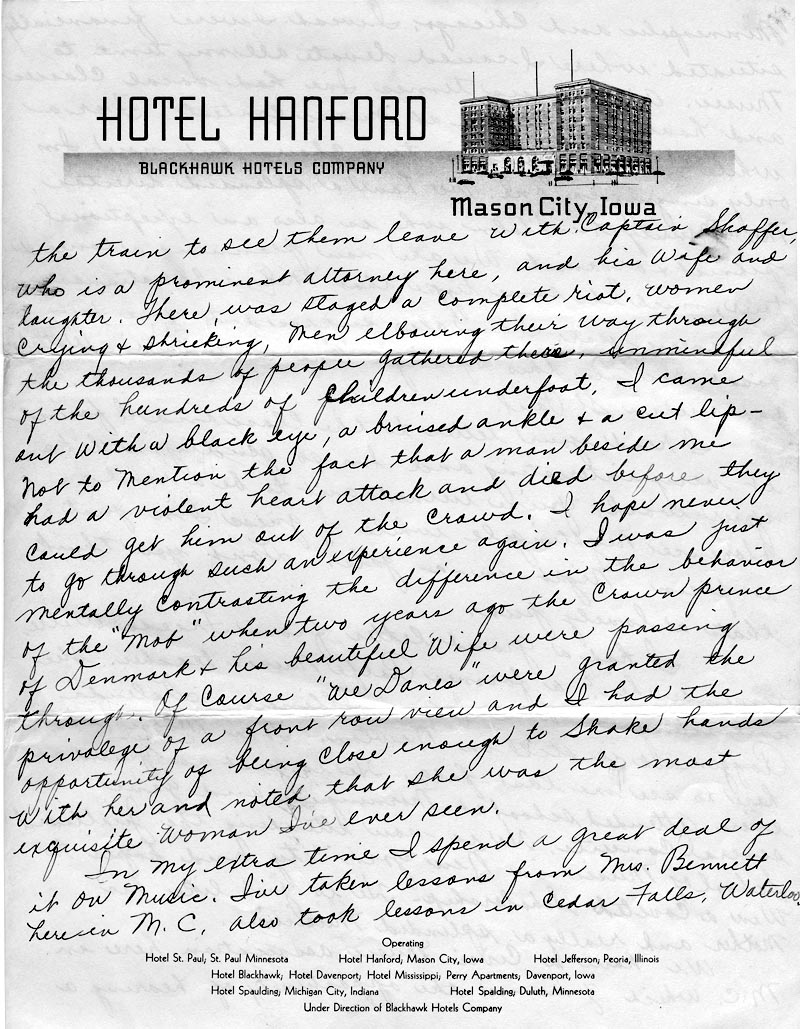 HOTEL HANFORD
BLACKHAWK HOTELS COMPANY
Mason City, Iowa
the train to see them leave with Captain Shaffer,
who is a prominent attorney here, and his wife and
daughter. There was staged a complete riot, women
crying & shrieking, men elbowing their way through
the thousands of people gathered there, unmindful
of the hundreds of children underfoot, I came
out with a black eye, a bruised ankle & a cut lip-
not to mention the fact that a man beside me
had a violent heart attack and died before they
could get him out of the crowd. I hope never
to go through such an experience again. I was just
mentally contrasting the difference in the behavior
of the "mob" when two years ago the Crown prince
of Denmark & his beautiful wife were passing
through. Of course "we Danes" were granted the
privalege of a front row view and I had the
opportunity of being close enough to shake hands
with her and noted that she was the most
exquisite woman I've ever seen.
In my extra time I spend a great deal of
it on music. I've taken lessons from Mrs. Bennett
here in M.C. also took lessons in Cedar Falls, Waterloo,
Operating
Hotel St. Paul; St. Paul Minnesota Hotel Hanford; Mason City, Iowa Hotel Jefferson; Peoria, Illinois
Hotel Blackhawk; Hotel Davenport; Hotel Mississippi; Perry Apartments; Davenport, Iowa
Hotel Spaulding; Michigan City, Indiana Hotel Spalding; Duluth, Minnesota
Under Direction of Blackhawk Hotels Company